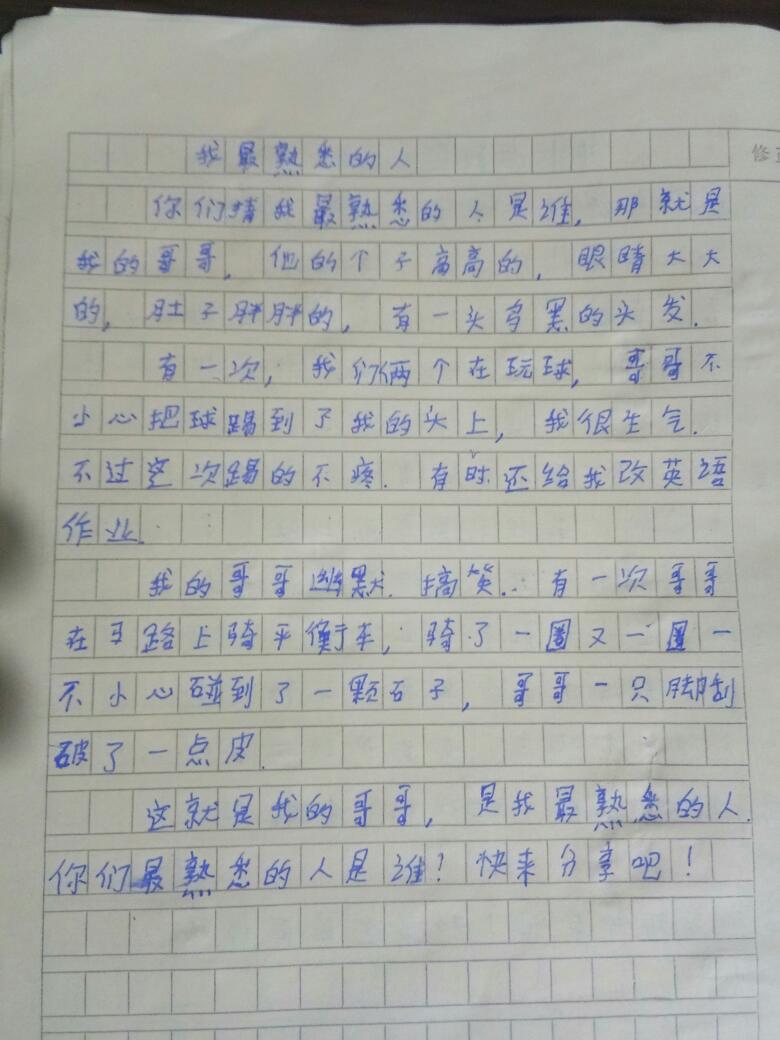 修
我最熟悉的人
你们猜我最熟悉的人是谁，那就是
我的哥哥，他的个子高高的，眼睛大大
的，肚子胖胖的，有一头乌黑的头发.
有一次，我们俩个在玩球，哥哥不
小心把球踢到了我的头上，我很生气.
不过这次踢的不疼.有时还给我改英语
作业.
我的哥哥幽默.搞笑.有一次哥哥
在马路上骑平衡车，骑了一圈又一圈一
不小心碰到了一颗石子，哥哥一只脚刮
破了一点皮.
这就是我的哥哥，是我最熟悉的人.
你们最熟悉的人是谁？快来分享吧！